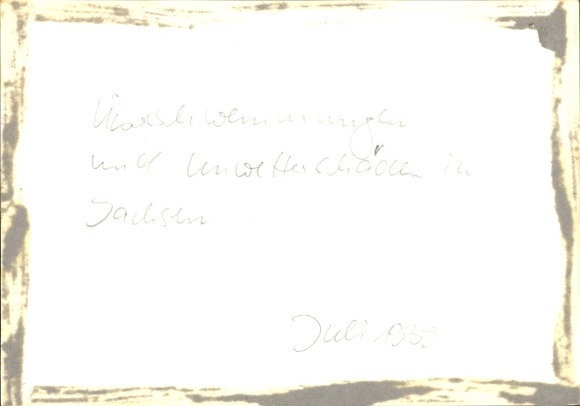 Überschwemmungen
und Unwetterschäden in
Sachsen
Juli 1939